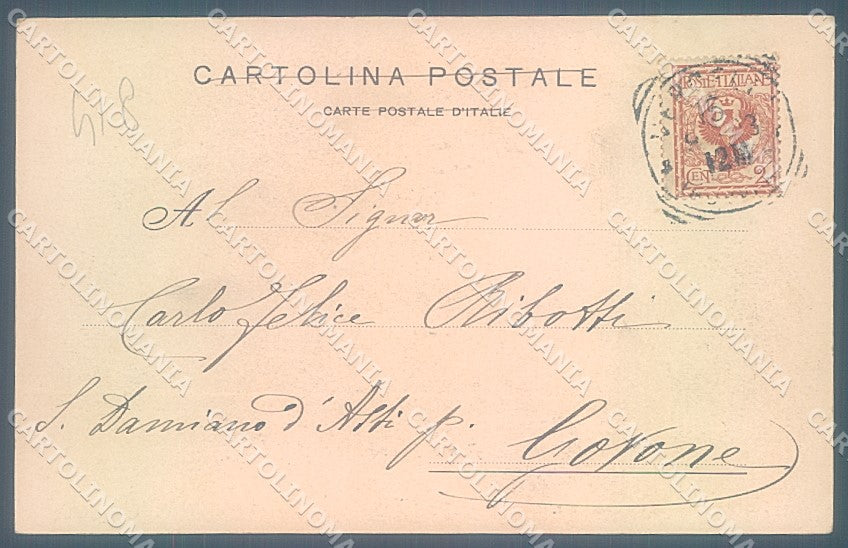 CARTOLINA POSTALE
CARTE POSTALE D'ITALIE
Al Signor
Carlo Felice Ribotti
S. Damiano d'Asti p.
Govone
POSTE ITALIANE
CENT 2
12 M
CARTOLINOMANIA